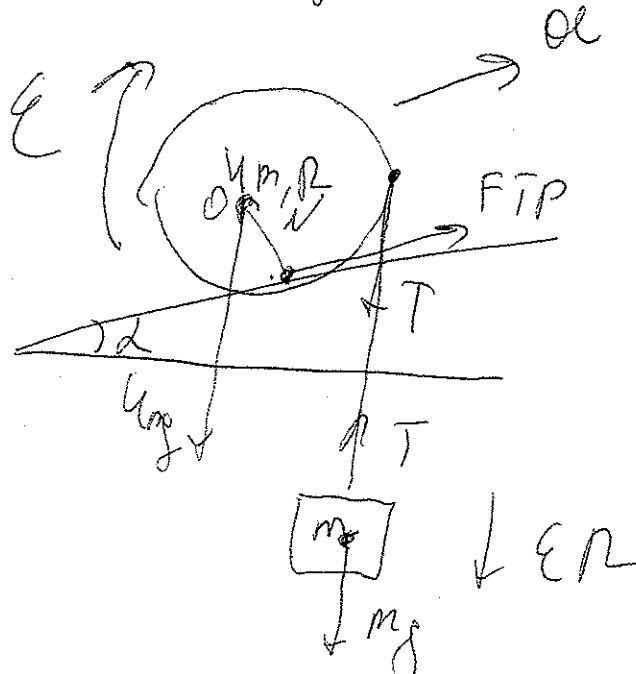 a
ε
4m, R
O
N
FTP
T
α
4mg
T
m
εR
mg